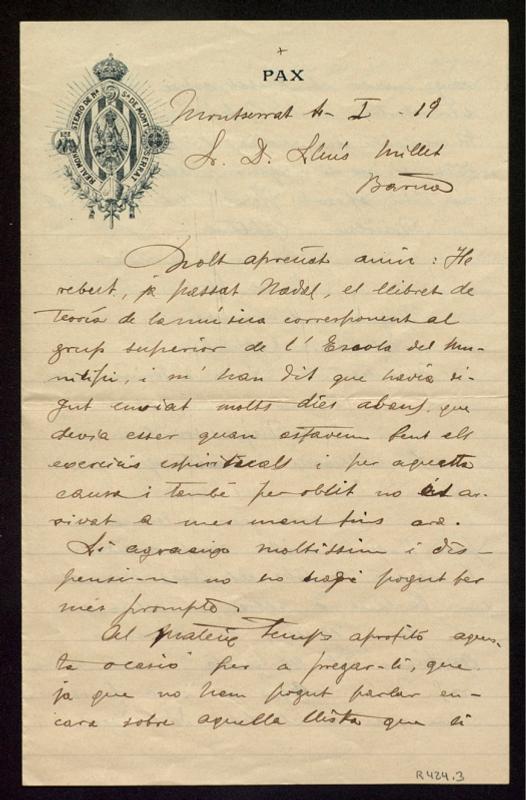 +
PAX
REAL MONASTERIO DE Nª Sª DE MONTSERRAT
Montserrat 4 - I - 19
Sr. D. Lluís Millet
Barna
Molt apreciat amic: He
rebut, ja passat Nadal, el llibret de
Teoría de la música corresponent al
grup superior de l'Escola del Mu-
nicipi, i m'han dit que havía si-
gut enviat molts díes abans, que
devía esser quan estavem fent els
exercicis espirituals i per aquesta
causa i també per oblit no ha ar-
rivat a mes mans fins ara.
Li agraeixo moltissim i dis-
pensi-m no ho hagi pogut fer
més prompte.
Al mateix temps aprofito aques-
ta ocasió per a pregar-li, que
ja que no hem pogut parlar en-
cara sobre aquella llista que li
R 424.3